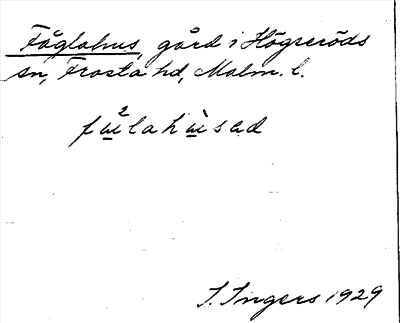 Fåglahus, gård i Högseröds
sn, Frosta hd, Malm. l.
fu̲²lahù̲sad
I. Ingers 1929